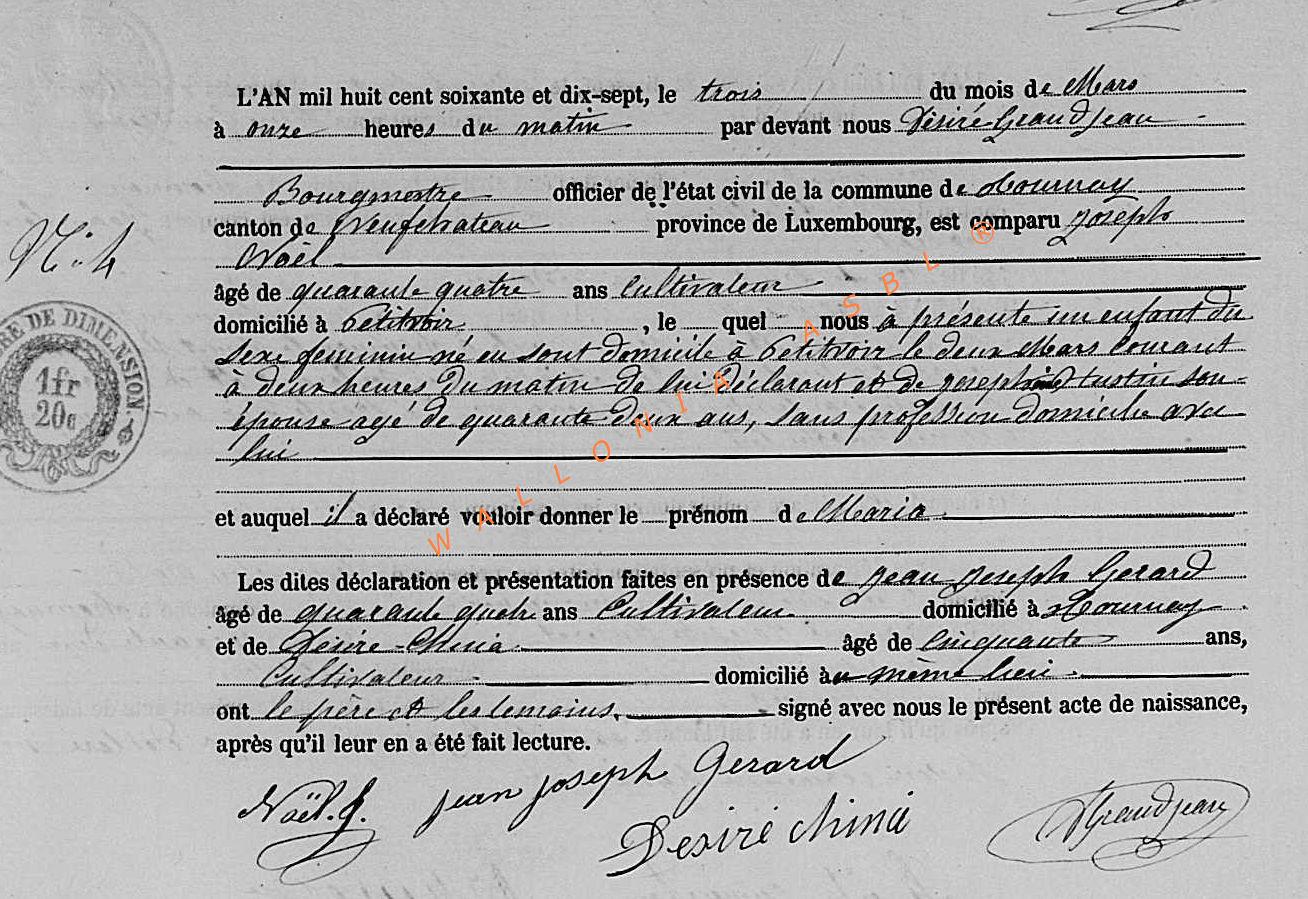 L'AN mil huit cent soixante et dix-sept, le trois du mois de Mars
à onze heures du matin par devant nous Désiré Grandjean
Bourgmestre officier de l'état civil de la commune de Tournay
canton de Neufchateau province de Luxembourg, est comparu Joseph
Noël
âgé de quarante quatre ans Cultivateur
domicilié à Petitvoir, le quel nous à présenté un enfant du
sexe feminin né en sont domicile à Petitvoir le deux Mars Courant
à deux heures Du matin de lui Déclarant et de Josephine Lustin son
épouse agé de quarante deux ans, sans profession domicilie avec
lui
et auquel il a déclaré vouloir donner le prénom de Maria
Les dites déclaration et présentation faites en présence de Jean Joseph Gerard
âgé de quarante quatre ans Cultivateur domicilié à Tournay
et de Désiré Chinà âgé de Cinquante ans,
Cultivateur domicilié au même lieu
ont le père et les temoins, signé avec nous le présent acte de naissance,
après qu'il leur en a été fait lecture.
N. 4
RE DE DIMENSION
1fr
20c
WALLONIA ASBL ®
Noël. J. Jean Joseph Gerard
Desiré China
DGrandjean